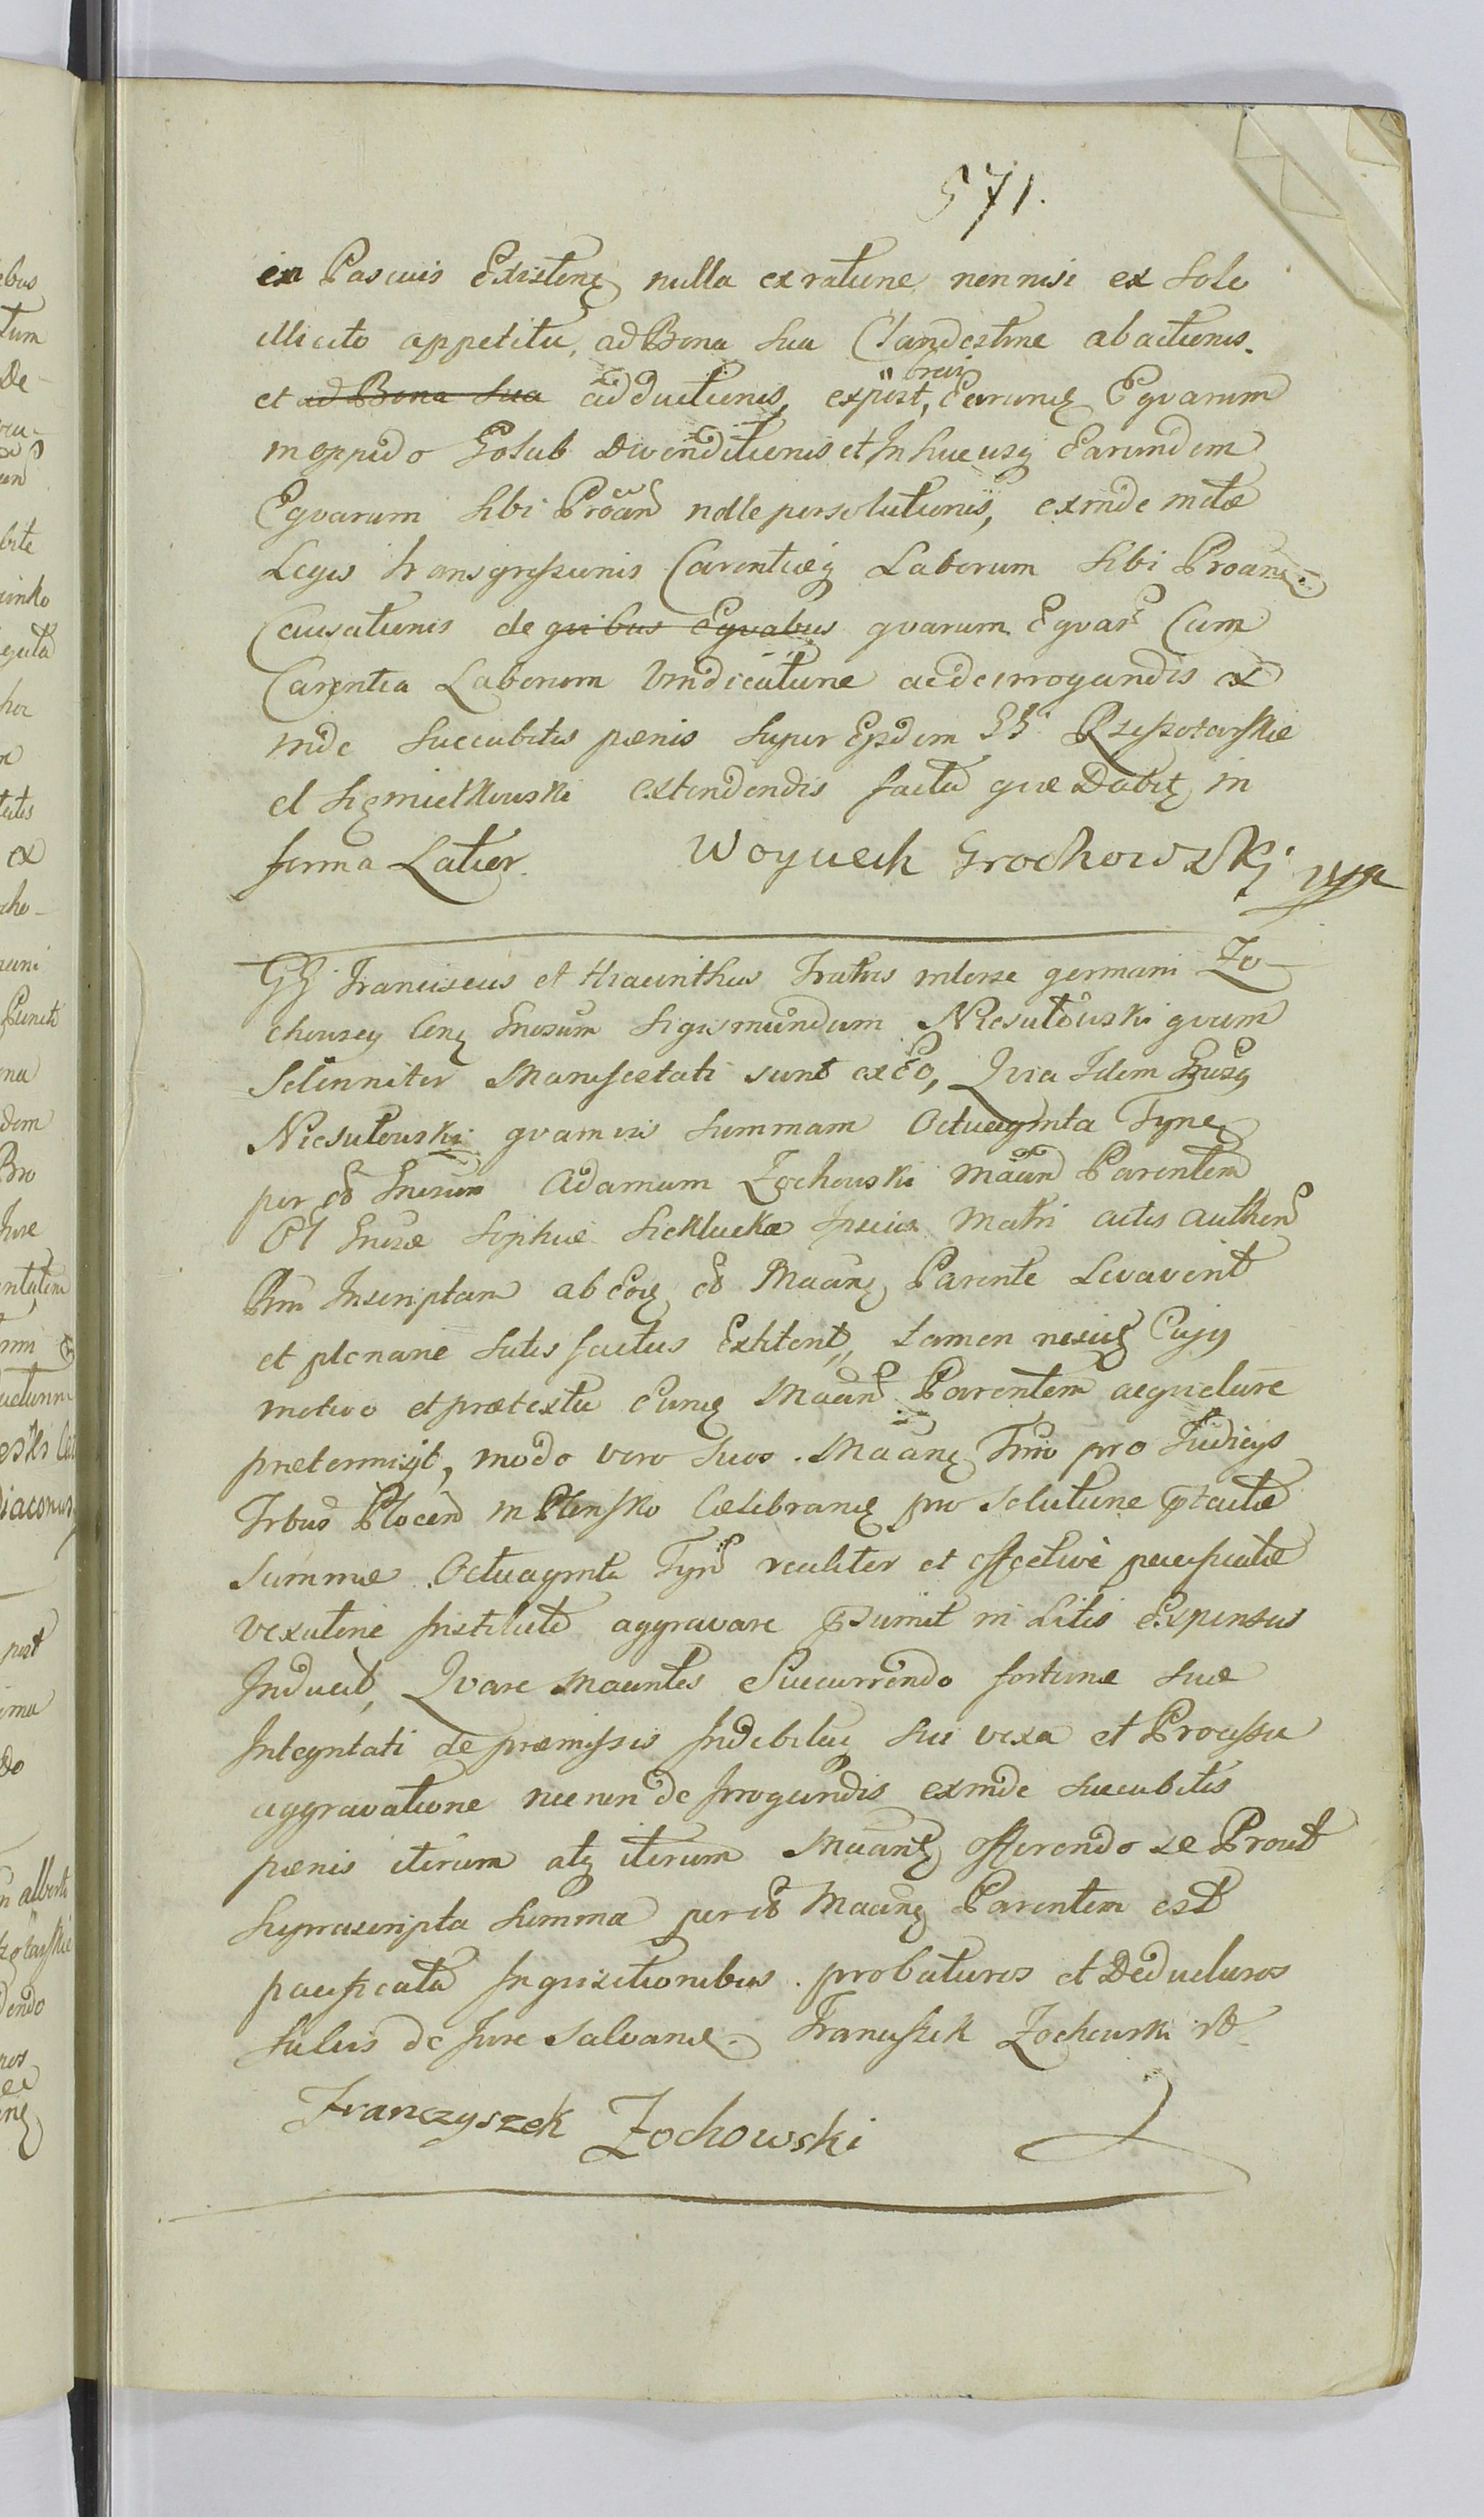 571.
in Pascuis Existenẽ nulla ex ratione non nisi ex solo
illicito appetitu, ad Bona sua Clandestine abactionis
et ad Bona sua adductionis, expost, Earunq Eqvarum
in oppido Golub divenditionis et In hucusq Earundem
Eqvarum sibi Proãn nolle persolutionis, exinde
Legis transgressionis Carentiæq Laborum sibi Proan
Causationis de qvibus Eqvabus qvarum Eqvar Cum
Carentia Laborum Vindicatione ac de irrogandis ex
inde succubitis pænis super Eosdem GG Rzeszotarskie
et Siemiatkowski extendendis facta qvæ Dabit in
forma Latior. Woyciech Grochowski mp

GG Franciscus et Hiacinthus Fratres interse germani Zo-
chowscy Gnosum Sigismundum Niesułowski qvam
Solenniter Manifestati sunt ex Eo, Qvia Idem Gnosus
Niesułowski qvamvis summam Octuaginta Tynf
per Gnosum Adamum Zochowski Maãn Parentem
Et Gnosæ Sophiæ Sieklucka Ipsius Matri actis Authen
Inscriptam ab Eoq Maan Parente Levaverit
et plenarie satisfactus Extiterit, tamen nescitq Cujus
motivo et prætextu Eunq Maan Parentem
prætermisit, modo vero suos Maanẽ Tmo pro Judicys
Trbus Plocen in Płońsko Celebranẽ pro solutione ptactæ
summæ Octuaginta Tynf realiter et effective pacificatæ
vexatione Institute aggravare psumit in Litis Expensas
Inducit, Qvare Maantes Succurrendo fortunæ suæ
Integritati de præmissis Indebitaq sui vexa et Processu
aggravatione nec non de Irrogandis exinde succubitis
pænis iterum atq iterum Maantẽ offerendo se Prout
Suprascripta summa per Maanẽ Parentem est
pacificata Inqvisitionibus probaturos et Deducturos
salvis de Jure salvanẽ. Franciszek Zochowski
Franczyszek Zochowski